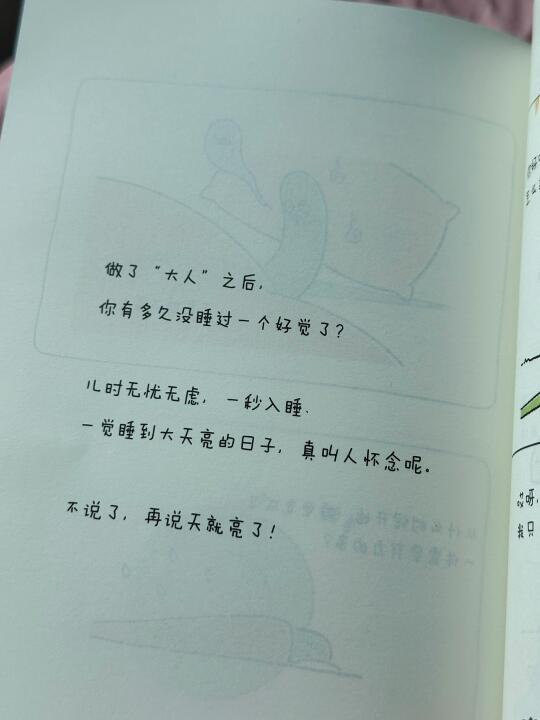 做了“大人”之后，
你有多久没睡过一个好觉了？
儿时无忧无虑，一秒入睡、
一觉睡到大天亮的日子，真叫人怀念呢。
不说了，再说天就亮了！
哎呀，
我只